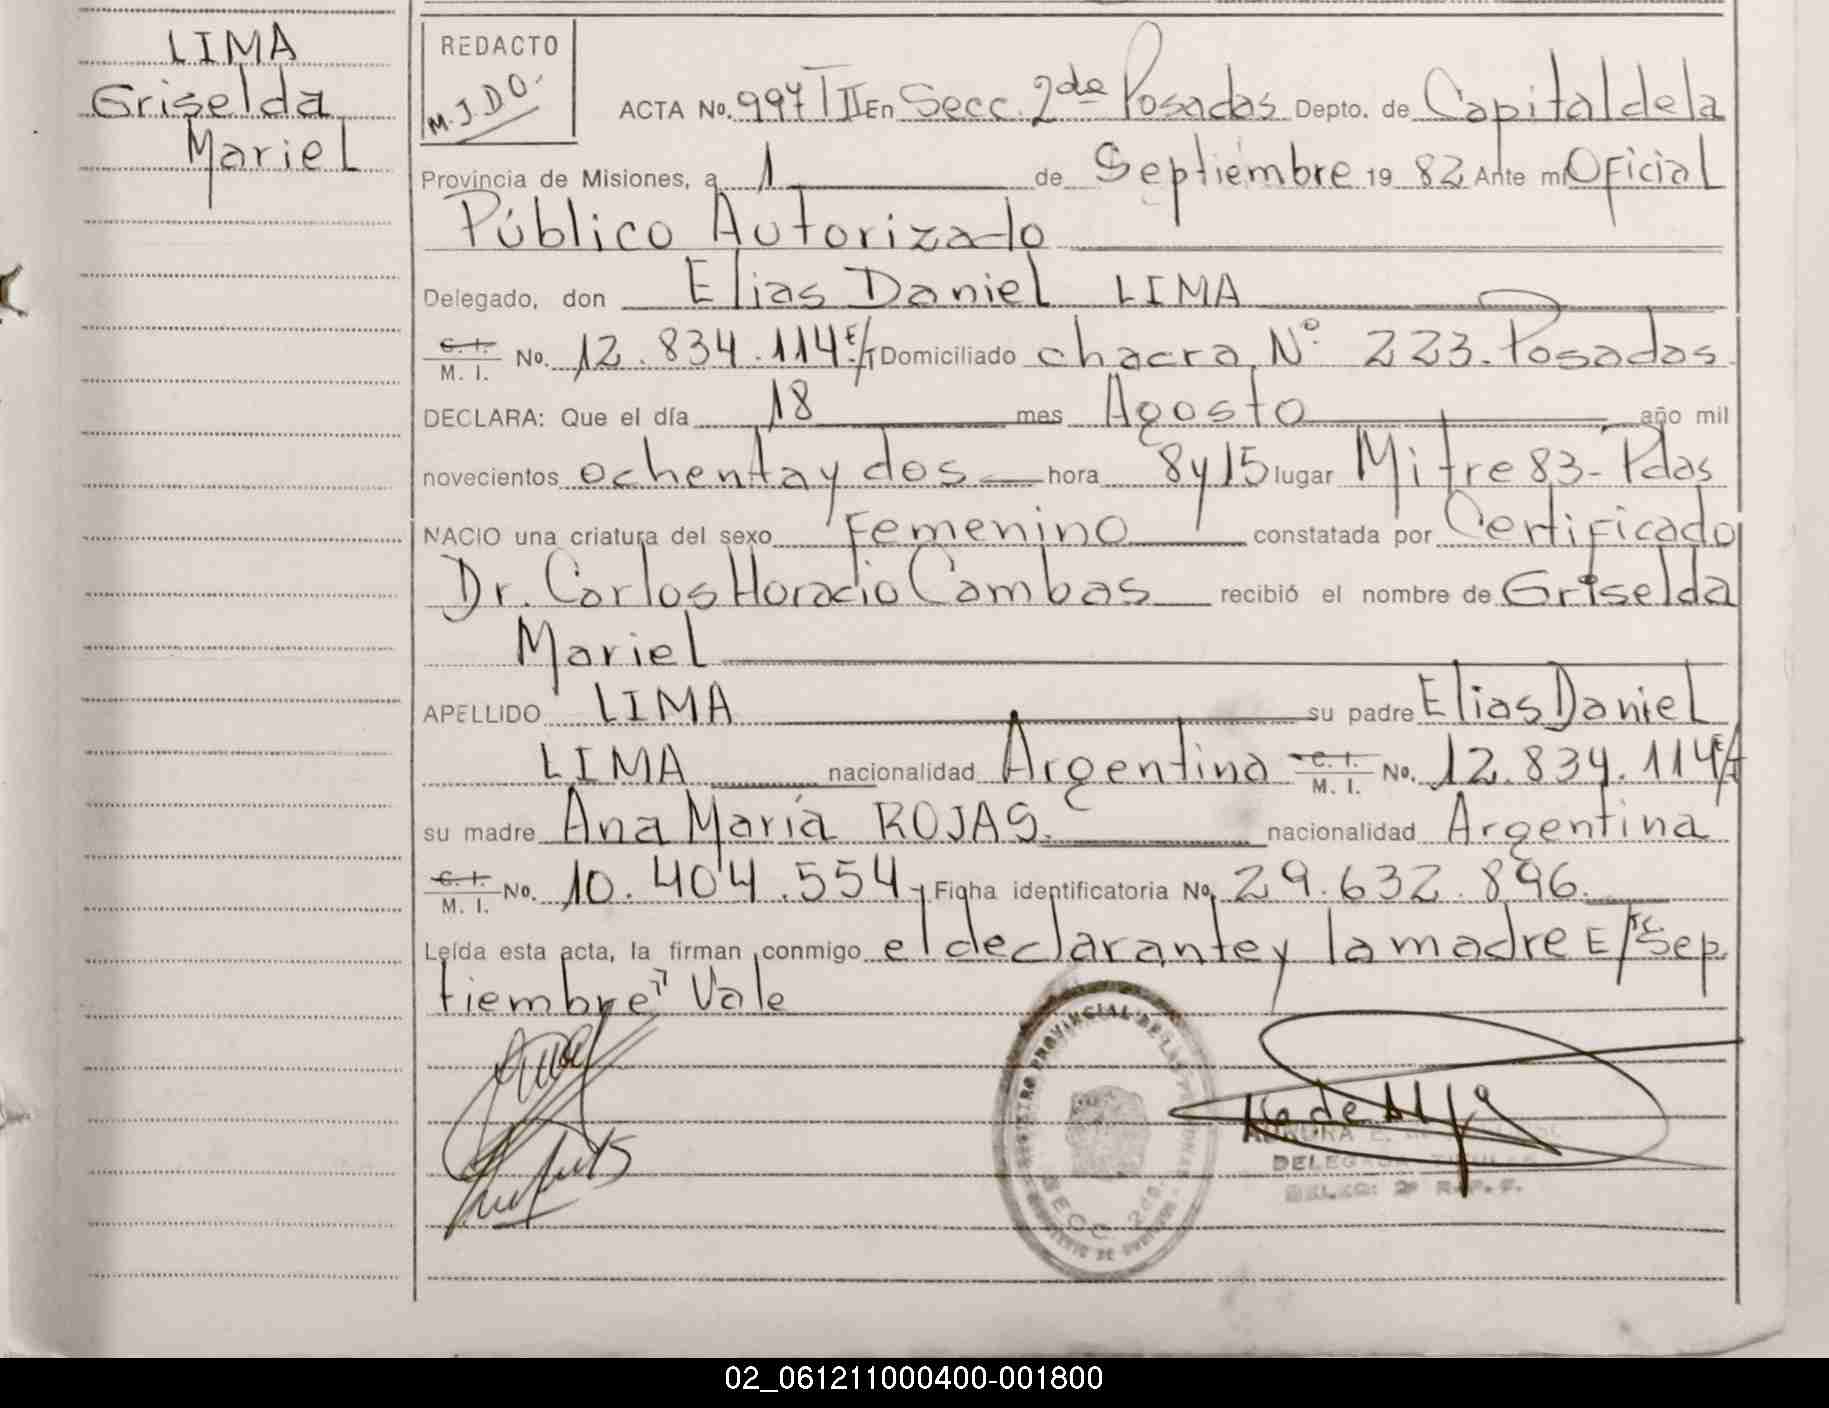 LIMA
Griselda
Mariel
REDACTO
M.J.D.O.
ACTA No. 997 TII En Secc. 2da Posadas Depto. de Capital de la
Provincia de Misiones, a 1 de Septiembre 19 82 Ante mi Oficial
Público Autorizado
Delegado, don Elias Daniel LIMA
C. I. M. I. No. 12.834.114 E/T Domiciliado chacra N° 223. Posadas
DECLARA: Que el día 18 mes Agosto año mil
novecientos ochenta y dos hora 8 y 15 lugar Mitre 83 - Pdas
NACIO una criatura del sexo Femenino constatada por Certificado
Dr. Carlos Horacio Cambas recibió el nombre de Griselda
Mariel
APELLIDO LIMA su padre Elias Daniel
LIMA nacionalidad Argentina C. I. M. I. No. 12.834.114
su madre Ana María ROJAS. nacionalidad Argentina
C. I. M. I. No. 10.404.554 Ficha identificatoria No. 29.632.896.
Leída esta acta, la firman conmigo el declarante y la madre E/Tc Sep
tiembre" Vale
REGISTRO PROVINCIAL DE LAS PERSONAS
SECC. 2da.
DELEGADA TITULAR
DELEG: 2ª R.P.P.
02_061211000400-001800